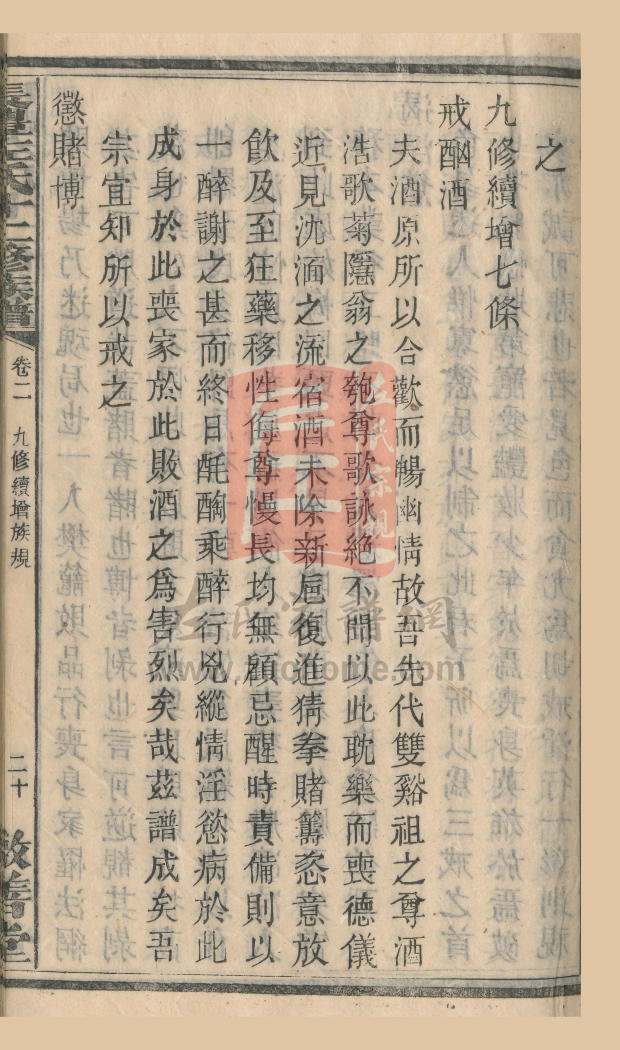 之
九修續增七條
戒酗酒
夫酒原所以合歡而暢幽情故吾先代雙谿祖之尊酒
浩歌菊隱翁之匏尊歌詠絕不聞以此耽樂而喪德儀
近見沈湎之流宿酒未除新卮復進猜拳賭籌恣意放
飲及至狂藥移性侮尊慢長均無顧忌醒時責備則以
一醉謝之甚而終日酕醄乘醉行兇縱情淫慾病於此
成身於此喪家於此敗酒之爲害烈矣哉茲譜成矣吾
宗宜知所以戒之
懲賭博
左氏十二修族譜
卷二
九修續增族規
二十
善堂
左氏宗親
www.zuohome.com